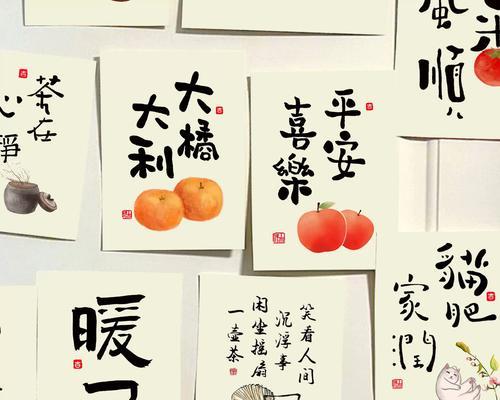 茶在
心靜
大橘
大利
平安
喜樂
順
貓肥
家潤
暖
笑看人间
沉浮事
闲坐摇扇
一壶茶